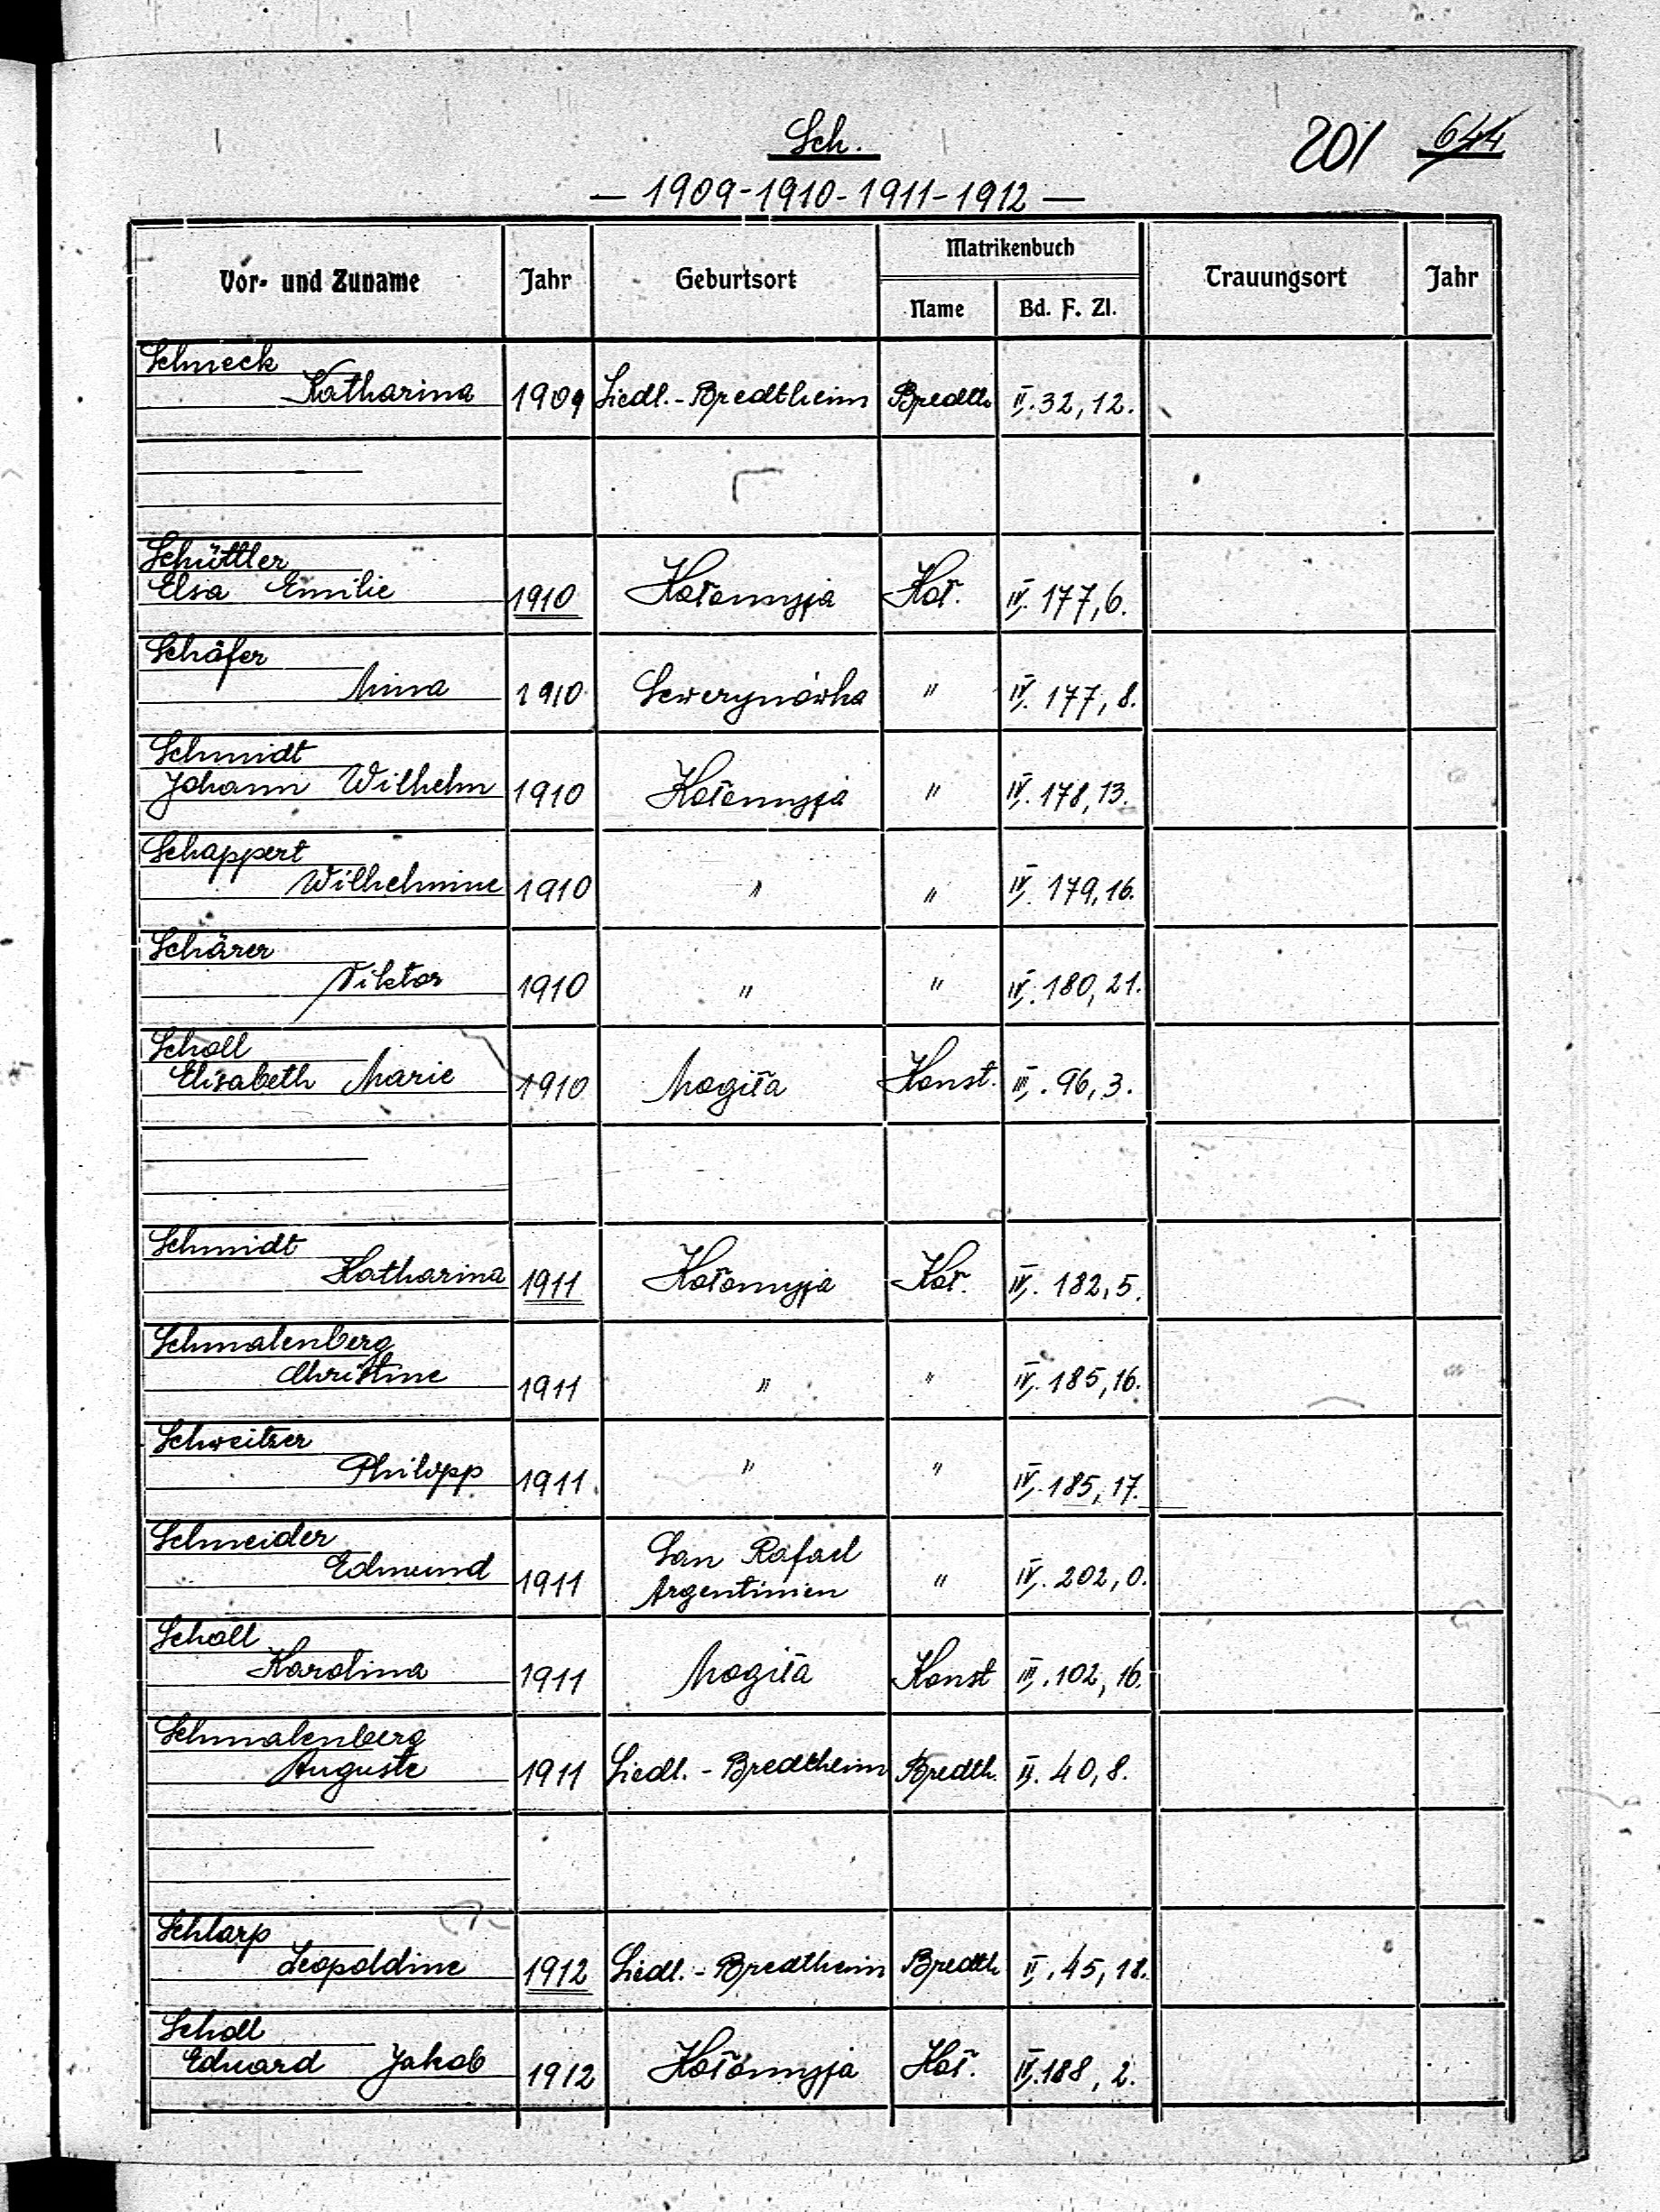 Sch.
201 644
— 1909-1910-1911-1912 —
Vor- und Zuname Jahr Geburtsort Matrikenbuch Trauungsort Jahr
Name Bd. F. Zl.
Schneck
Katharina 1909 Siedl.-Bredtheim Bredth. II. 32, 12.
Schüttler
Elsa Emilie 1910 Kołomyja Koł. IV. 177, 6.
Schäfer
Anna 1910 Sewerynówka " IV. 177, 8.
Schmidt
Johann Wilhelm 1910 Kołomyja " IV. 178, 13.
Schappert
Wilhelmine 1910 " " IV. 179, 16.
Schärer
Viktor 1910 " " IV. 180, 21.
Scholl
Elisabeth Marie 1910 Mogiła Konst. III. 96, 3.
Schmidt
Katharina 1911 Kołomyja Koł. IV. 182, 5.
Schmalenberg
Christine 1911 " " IV. 185, 16.
Schweitzer
Philipp 1911 " " IV. 185, 17.
Schneider
Edmund 1911 San Rafael
Argentinien " IV. 202, 0.
Scholl
Karolina 1911 Mogiła Konst III. 102, 16.
Schmalenberg
Auguste 1911 Siedl.-Bredtheim Bredth. II. 40, 8.
Schlarp
Leopoldine 1912 Siedl.-Bredtheim Bredth II. 45, 18.
Scholl
Eduard Jakob 1912 Kołomyja Koł. IV. 188, 2.